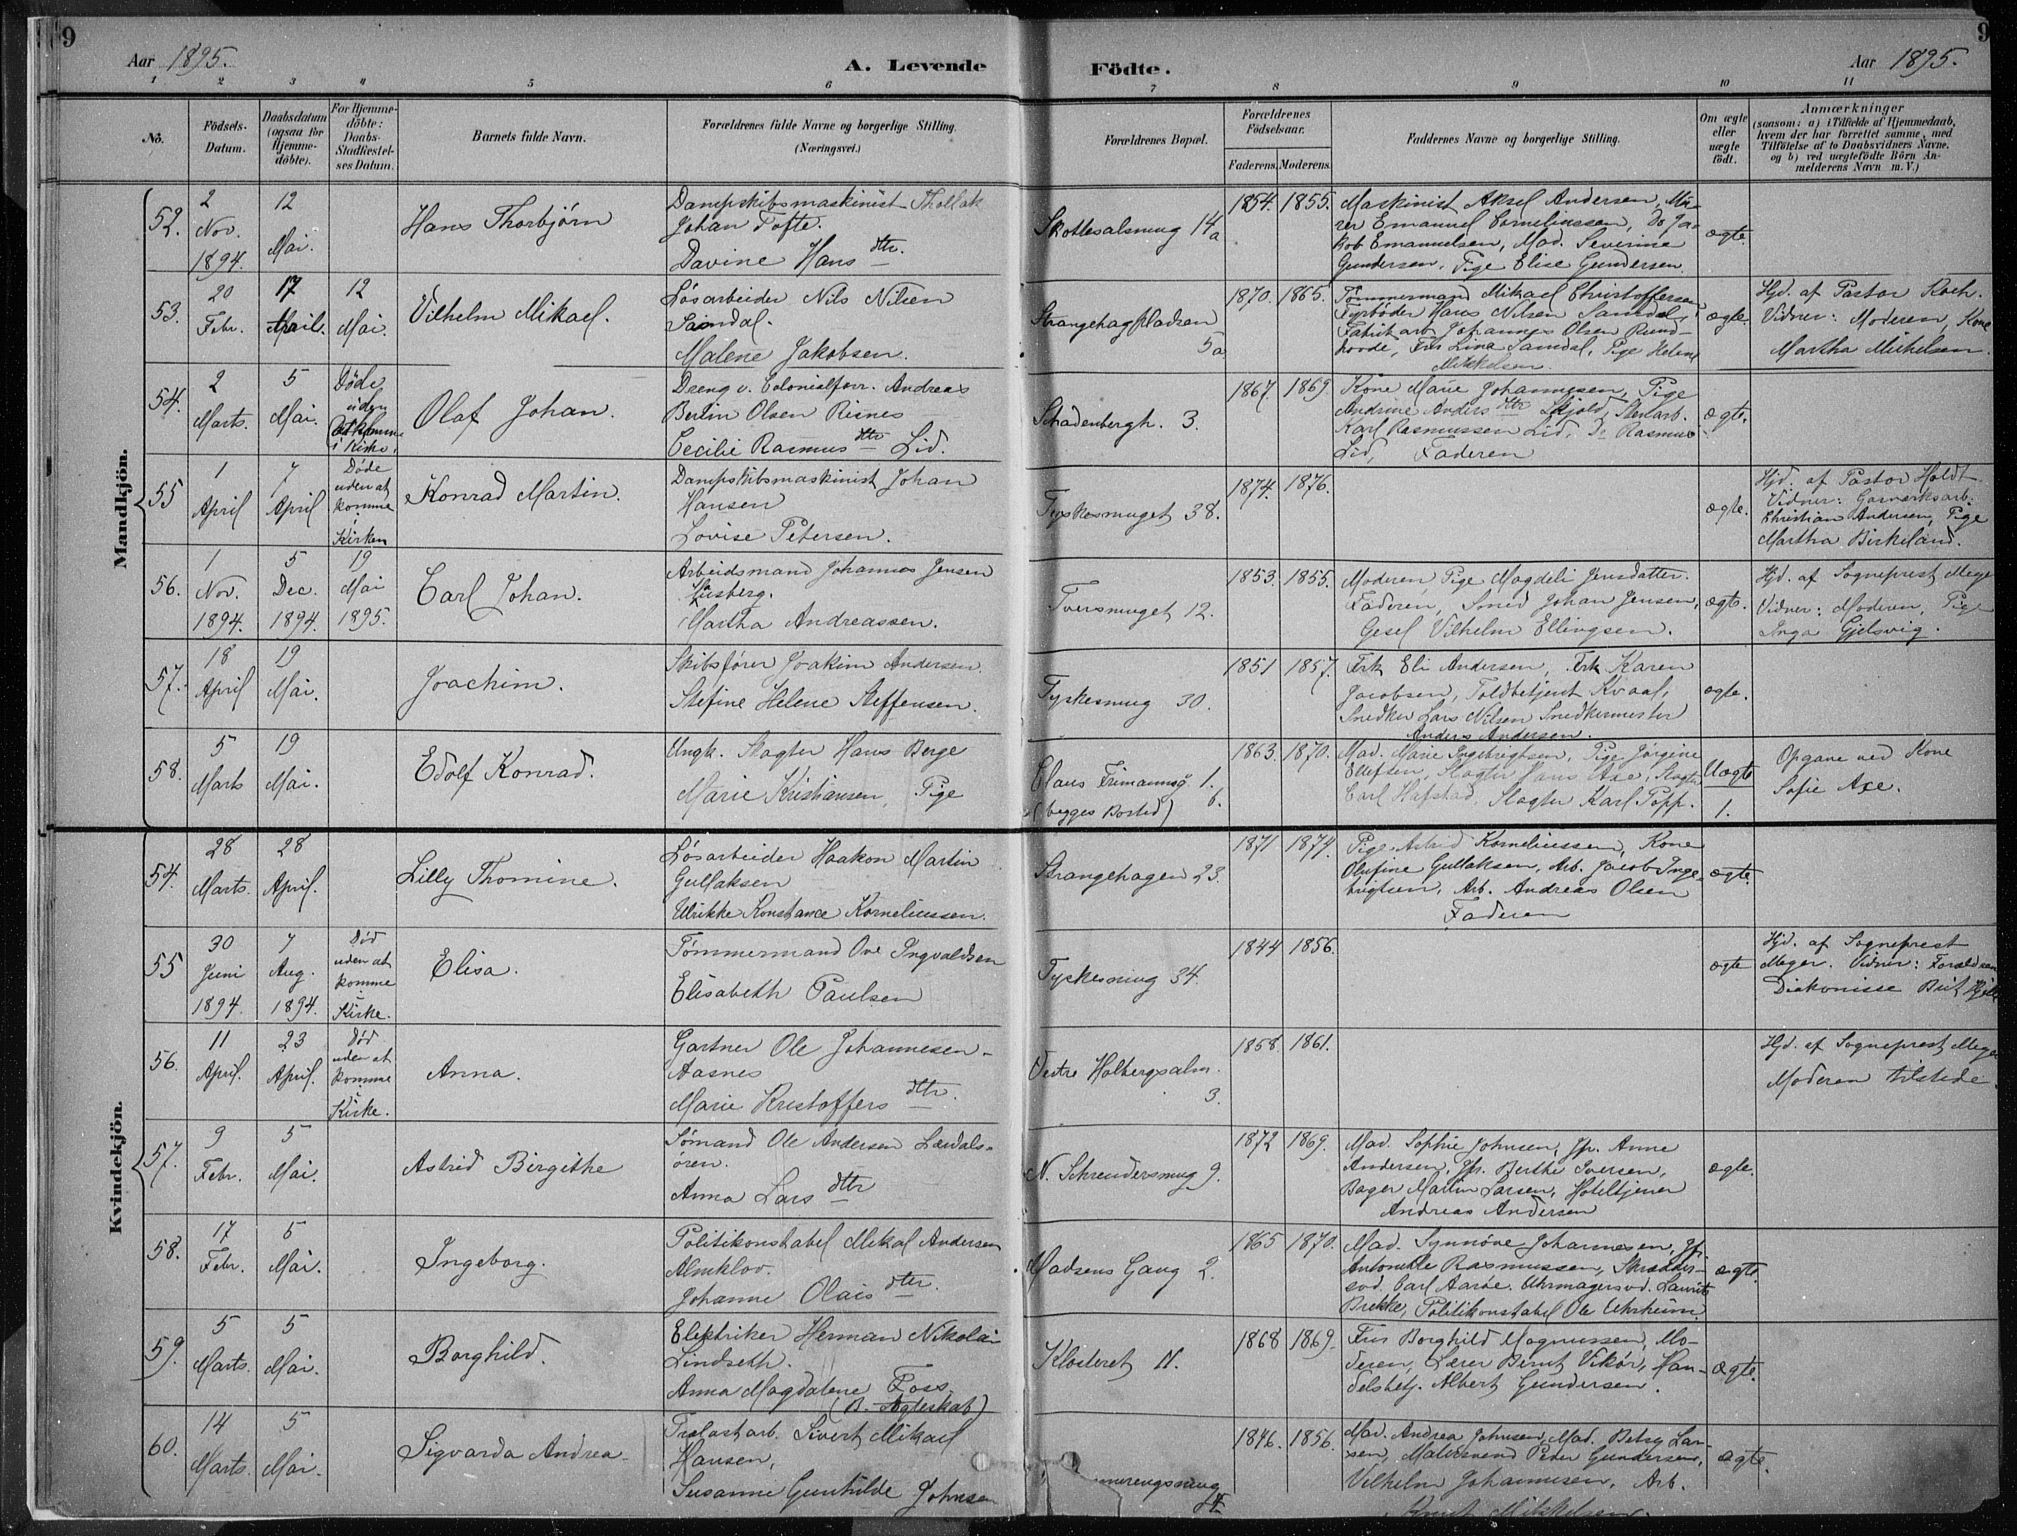 9
Aar 1895.
A. Levende
Födte.
Aar 1895.
9
1 2 3 4 5 6 7 8 9 10 11
No.
Födsels-Datum.
Daabsdatum (ogsaa for Hjemmedöbte).
For Hjemmedöbte: Daabs-Stadfæstelses Datum.
Barnets fulde Navn.
Forældrenes fulde Navne og borgerlige Stilling. (Næringsvei.)
Forældrenes Bopæl.
Forældrenes Födselsaar.
Faderens. Moderens.
Faddernes Navne og borgerlige Stilling.
Om ægte eller uægte födt.
Anmærkninger
(saasom: a) i Tilfælde af Hjemmedaab,
hvem der har forrettet samme, med
Tilföielse af to Daabsvidners Navne.
og b) ved uægtefödte Börn An-
melderens Navn m. V.)
Mandkjön.
52. 2 Nov. 1894. 12 Mai.
Hans Thorbjørn
Dampskibsmaskinist Thollak
Johan Tofte.
Davine Hans dtr.
Skottesalsmug 14 a
1854. 1855.
Maskinist Aksel Andersen, Mu-
rer Emanuel Corneliussen, Do Ja-
kob Emanuelsen, Mad. Severine
Gundersen, Pige Elise Gundersen.
ægte.
53. 20 Febr. 17 April. 12 Mai.
Vilhelm Mikael.
Løsarbeider Nils Nilsen
Samdal.
Malene Jakobsen.
Strangehagpladsen 5a
1870. 1865.
Tømmermand Mikael Christoffersen
Fyrbøder Hans Nilsen Samdal,
Fabrikarb. Johannes Olsen Rund-
hovde, Frk Lina Samdal, Pige Helene
Mikkelsen.
ægte.
Hjd. af Pastor Koch.
Vidner: Moderen, Kone
Martha Mikelsen.
54. 2 Marts. 5 Mai.
Døde uden at komme i Kirke.
Olaf Johan.
Dreng v. Colonialforr. Andreas
Berlin Olsen Risnes
Cecilie Rasmus dtr Lid.
Skadenbergh. 3.
1867. 1869
Kone Marie Johannesen, Pige
Andrine Anders dtr Skjold, Stenarb.
Karl Rasmussen Lid, Do Rasmus
Lid, Faderen
ægte.
55 1 April 7 April
Døde uden at komme i Kirken
Konrad Martin.
Dampskibsmaskinist Johan
Hansen
Lovise Petersen.
Tyskesmuget 38.
1874. 1876.
ægte.
Hjd. af Pastor Holdt.
Vidner: Garverksarb.
Christian Andersen, Pige
Martha Birkeland.
56. 1 Nov. 1894. 5 Dec. 1894. 19 Mai 1895.
Carl Johan.
Arbeidsmand Johannes Jensen
Martha Andreassen.
Tversmuget 12.
1853. 1855.
Moderen, Pige Magdeli Jensdatter.
Faderen, Smed Johan Jensen,
Gesel Vilhelm Ellingsen.
ægte.
Hjd. af Sogneprest Meyer
Vidner: Moderen, Pige
Inga Gjelsvig.
57. 18 April 19 Mai.
Joachim.
Skibsfører Joakim Andersen.
Stefine Helene Steffensen.
Tyskesmug 30.
1851 1857.
Frk Eli Andersen, Frk Karen
Jacobsen, Toldbetjent Kvaal,
Snedker Lars Nilsen Snedkermester
Anders Andersen.
ægte.
58. 5 Marts 19 Mai.
Edolf Konrad.
Ungk. Slagter Hans Berge
Marie Kristiansen, Pige
Claus Frimannsg 1. b.
(begges Bosted)
1863. 1870.
Mad. Marie Ingebrigtsen, Pige Jørgine
Ellefsen, Slagter Hans Axe, Slagter
Carl Hafstad, Slagter Karl Popp.
Uægte 1.
Opgave ved Kone
Sofie Axe.
Kvindekjön.
54. 28 Marts. 28 April.
Lilly Thomine.
Løsarbeider Haakon Martin
Gullaksen
Ulrikke Konstance Korneliussen.
Strangehagen 23.
1871 1874.
Pige Astrid Korneliussen, Kone
Olufine Gullaksen, Arb. Jacob Inge-
brigtsen, Arb. Andreas Olsen
Faderen
ægte.
55 30 Juni 1894. 7 Aug. 1894.
Død uden at komme i Kirke.
Elisa.
Tømmermand Ove Ingvaldsen
Elisabeth Paulsen
Tyskesmug 34.
1844 1856.
ægte
Hjd. af Sogneprest
Meyer. Vidner: Forældrene
Diakonisse Brit
56. 11 April. 23 April.
Død uden at komme i Kirke.
Anna.
Gartner Ole Johannesen
Aasnes
Marie Kristoffers dtr.
Vestre Holbergsalm. 3.
1858. 1861.
Hjd. af Sogneprest Meyer
Moderen tilstede.
57. 9 Febr. 5 Mai.
Astrid Birgithe
Sømand Ole Andersen Lærdals-
øren.
Anna Lars dtr
N. Skreudersmug 9.
1872 1869.
Mad. Sophie Johnsen, Jfr. Anne
Andersen, Jfr. Berthe Iversen,
Bager Martin Larsen, Hoteltjener
Andreas Andersen
ægte.
58. 17 Febr. 5 Mai.
Ingeborg.
Politikonstabel Mikal Andersen
Almklov.
Johanne Olais dtr.
Madsens Gang 2.
1865 1870.
Mad. Synnøve Johannesen, Jfr.
Antonette Rasmussen, Skrædder-
svd. Carl Aarøe. Uhrmagersvd. Laurits
Brekke, Politikonstabel Ole Uhrheim.
ægte.
59. 5 Marts. 5 Mai.
Borghild.
Elektriker Herman Nikolai
Lindseth.
Anna Magdalene Foss.
(B. Ægteskab)
Klosteret 11.
1868 1869.
Frk Borghild Magnussen, Mo-
deren, Lærer Bernt Vikør, Han-
delsbetj. Albert Gundersen.
ægte.
60. 14 Marts. 5 Mai.
Sigvarda Andrea
Trælastarb. Sivert Mikael
Hansen,
Susanne Gunhilde Johnsen
1846. 1856.
Mad. Andrea Johnsen, Mad. Betsy Lar-
sen, Malersvend Peder Gundersen,
Vilhelm Johannesen, Arb.
Knut Mikkelsen.
ægte.